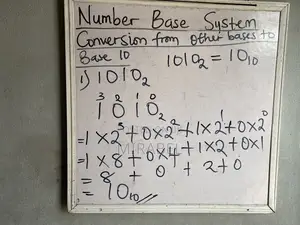 Number Base System
Conversion from other bases to
Base 10
1010₂ = 10₁₀
1) 1010₂
3 2 1 0
1 0 1 0₂
=1×2³+0×2²+1×2¹+0×2⁰
=1×8+0×4+1×2+0×1
= 8 + 0 + 2+0
= 10₁₀//
MIRABEL